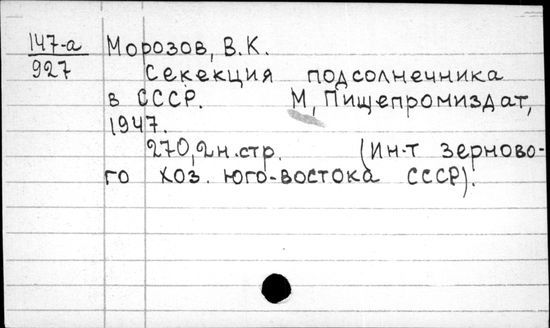 147-а
927
Морозов, В.К.
Секекция подсолнечника
в СССР. М, Пищепромиздат,
1947.
270,2н.стр. (Ин-т зерново-
го хоз. юго-востока СССР).